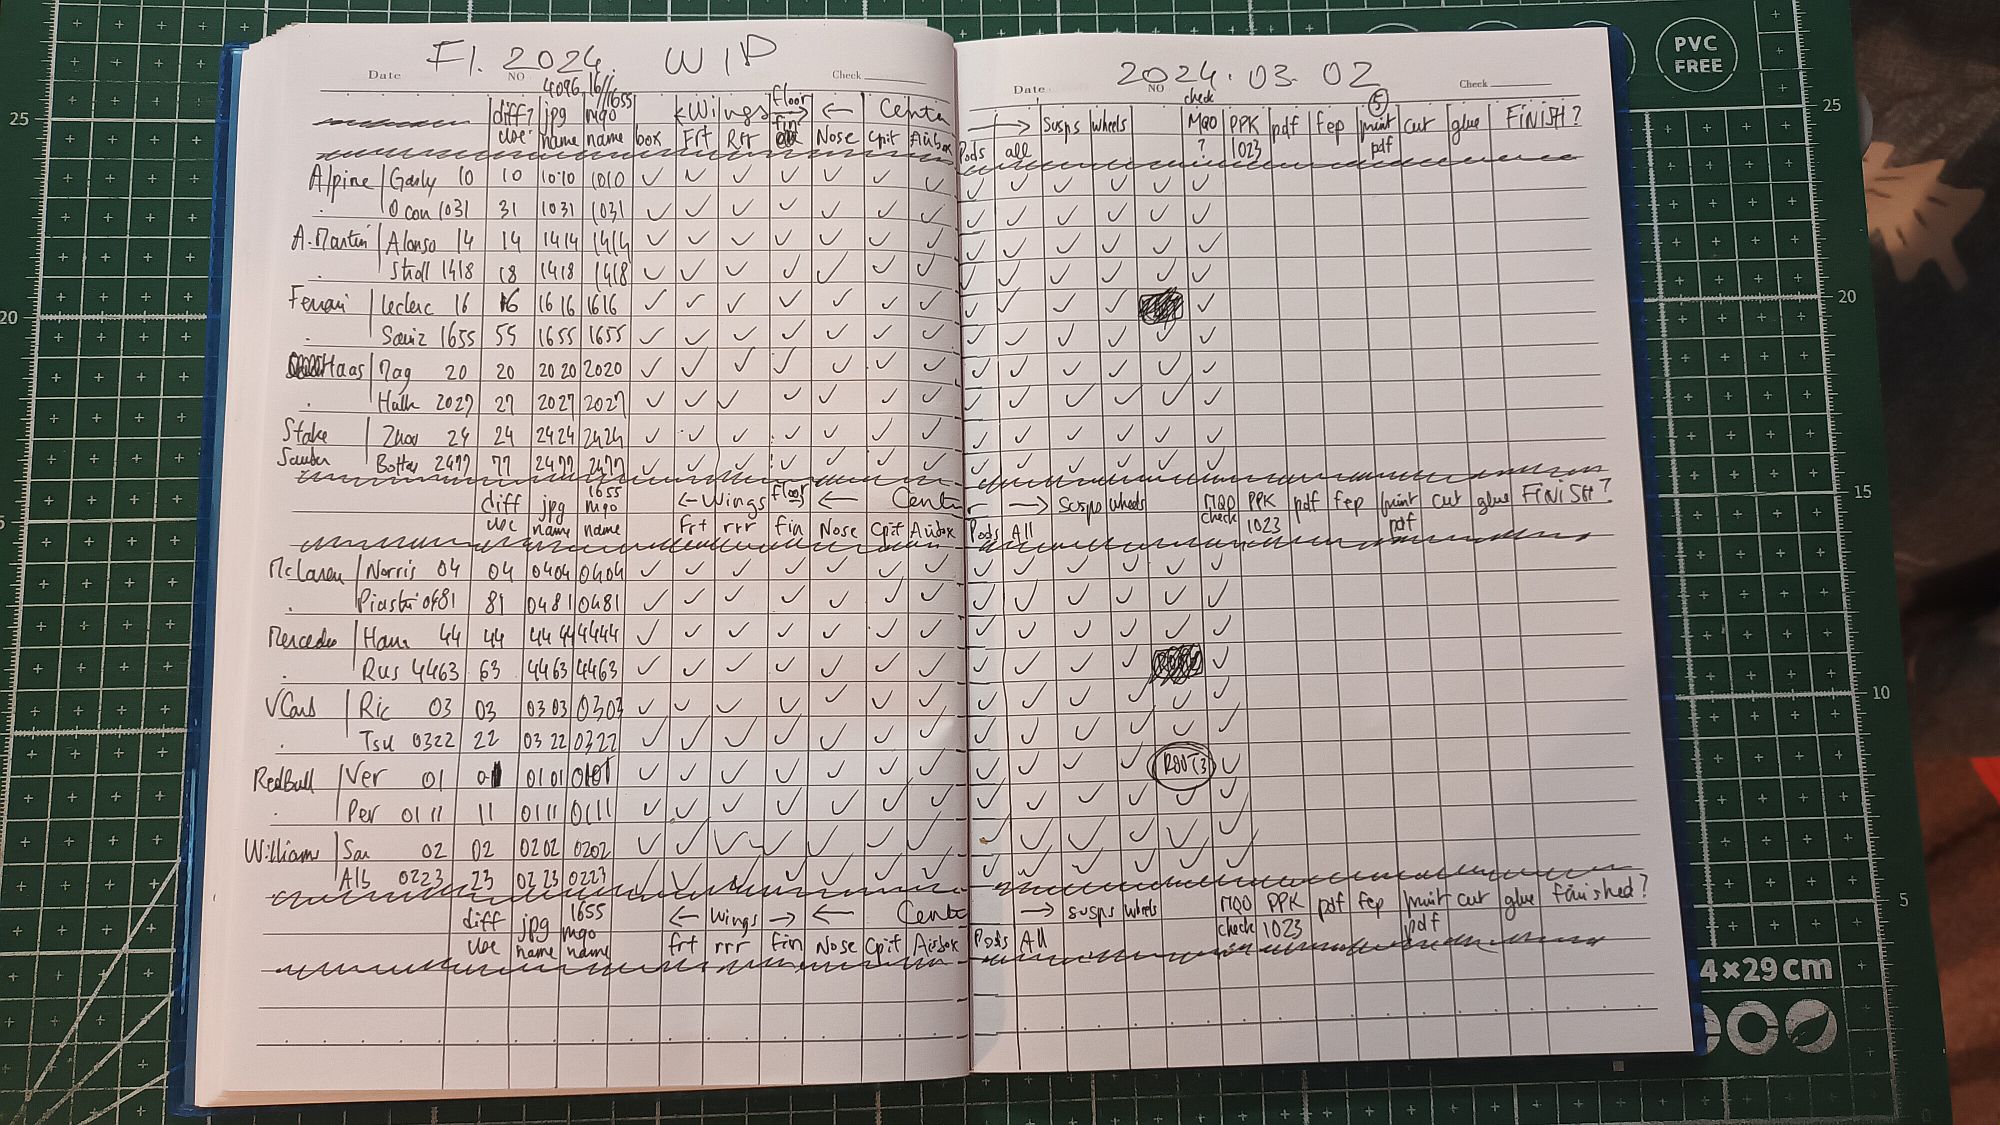 F1. 2024. WIP
Date NO Check
4096 16//1655
diff? jpg mqo ← Wings floor → ← Cente
name name box Frt Rrr fin Nose Cpit Airbox
Alpine Gasly 10 10 1010 1010 ✓ ✓ ✓ ✓ ✓ ✓ ✓
Ocon 1031 31 1031 1031 ✓ ✓ ✓ ✓ ✓ ✓ ✓
A.Martin Alonso 14 14 1414 1414 ✓ ✓ ✓ ✓ ✓ ✓ ✓
Stroll 1418 18 1418 1418 ✓ ✓ ✓ ✓ ✓ ✓ ✓
Ferrari Leclerc 16 16 1616 1616 ✓ ✓ ✓ ✓ ✓ ✓ ✓
Sainz 1655 55 1655 1655 ✓ ✓ ✓ ✓ ✓ ✓ ✓
Haas Mag 20 20 2020 2020 ✓ ✓ ✓ ✓ ✓ ✓ ✓
Hulk 2027 27 2027 2027 ✓ ✓ ✓ ✓ ✓ ✓ ✓
Stake Zhou 24 24 2424 2424 ✓ ✓ ✓ ✓ ✓ ✓ ✓
Sauber Bottas 2477 77 2477 2477 ✓ ✓ ✓ ✓ ✓ ✓ ✓
diff jpg 1655 mqo ← Wings floor ← Cente
name name Frt rrr fin Nose Cpit Airbox
McLaren Norris 04 04 0404 0404 ✓ ✓ ✓ ✓ ✓ ✓ ✓
Piastri 0481 81 0481 0481 ✓ ✓ ✓ ✓ ✓ ✓ ✓
Mercedes Ham 44 44 4444 4444 ✓ ✓ ✓ ✓ ✓ ✓ ✓
Rus 4463 63 4463 4463 ✓ ✓ ✓ ✓ ✓ ✓ ✓
VCarb Ric 03 03 0303 0303 ✓ ✓ ✓ ✓ ✓ ✓ ✓
Tsu 0322 22 0322 0322 ✓ ✓ ✓ ✓ ✓ ✓ ✓
RedBull Ver 01 01 0101 0101 ✓ ✓ ✓ ✓ ✓ ✓ ✓
Per 0111 11 0111 0111 ✓ ✓ ✓ ✓ ✓ ✓ ✓
Williams Sar 02 02 0202 0202 ✓ ✓ ✓ ✓ ✓ ✓ ✓
Alb 0223 23 0223 0223 ✓ ✓ ✓ ✓ ✓ ✓ ✓
diff jpg 1655 mqo ← Wings → ← Cente
name name frt rrr fin Nose Cpit Airbox
2024.03.02
Date NO Check
check ⑤
→ susps wheels MQO PPK pdf fep print cut glue FINISH?
Pods all ? 1023 pdf
✓ ✓ ✓ ✓ ✓ ✓
✓ ✓ ✓ ✓ ✓ ✓
✓ ✓ ✓ ✓ ✓ ✓
✓ ✓ ✓ ✓ ✓ ✓
✓ ✓ ✓ ✓ ✓
✓ ✓ ✓ ✓ ✓ ✓
✓ ✓ ✓ ✓ ✓ ✓
✓ ✓ ✓ ✓ ✓ ✓
✓ ✓ ✓ ✓ ✓ ✓
✓ ✓ ✓ ✓ ✓ ✓
r → susps wheels MQO PPK pdf fep print cut glue FINISH?
Pods All check 1023 pdf
✓ ✓ ✓ ✓ ✓ ✓
✓ ✓ ✓ ✓ ✓ ✓
✓ ✓ ✓ ✓ ✓ ✓
✓ ✓ ✓ ✓ ✓
✓ ✓ ✓ ✓ ✓ ✓
✓ ✓ ✓ ✓ ✓ ✓
✓ ✓ ✓ ✓ ROOT3 ✓
✓ ✓ ✓ ✓ ✓ ✓
✓ ✓ ✓ ✓ ✓ ✓
✓ ✓ ✓ ✓ ✓ ✓
→ susps wheels MQO PPK pdf fep print cut glue finished?
Pods All check 1023 pdf
PVC
FREE
25
20
15
10
5
25
20
5
4×29cm